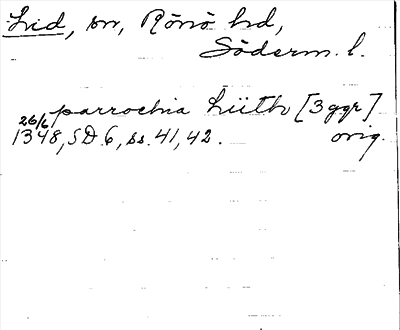 Lid, sn, Rönö hd,
Söderm. l.
parrochia Lüth [3 ggr]
26/6 1348, SD 6, ss. 41, 42. orig.